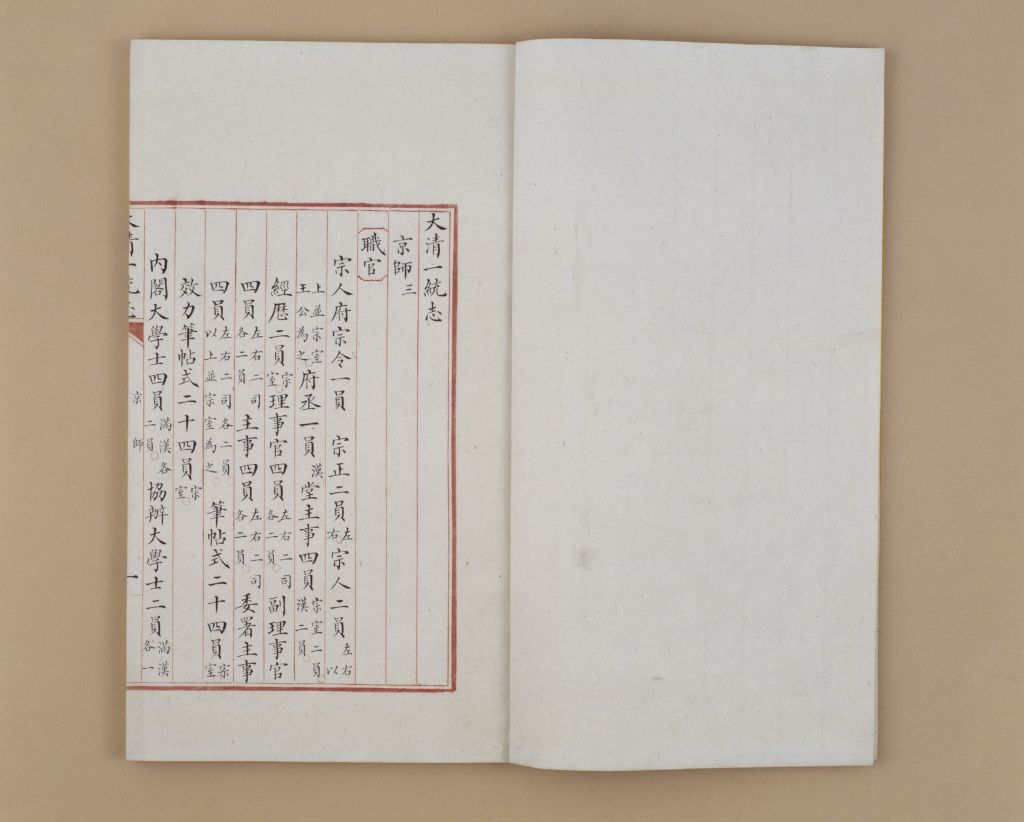 大清一統志
京師三
職官
宗人府宗令一員 宗正二員左右宗人二員左右以
上並宗室王公為之府丞一員漢堂主事四員宗室二員漢二員
經厯二員宗室理事官四員左右二司各二員副理事官
四員左右二司各二員主事四員左右二司各二員委署主事
四員左右二司各二員以上並宗室為之筆帖式二十四員宗室
效力筆帖式二十四員宗室
內閣大學士四員滿漢各二員協辦大學士二員滿漢各一
大清一統志 京師 一